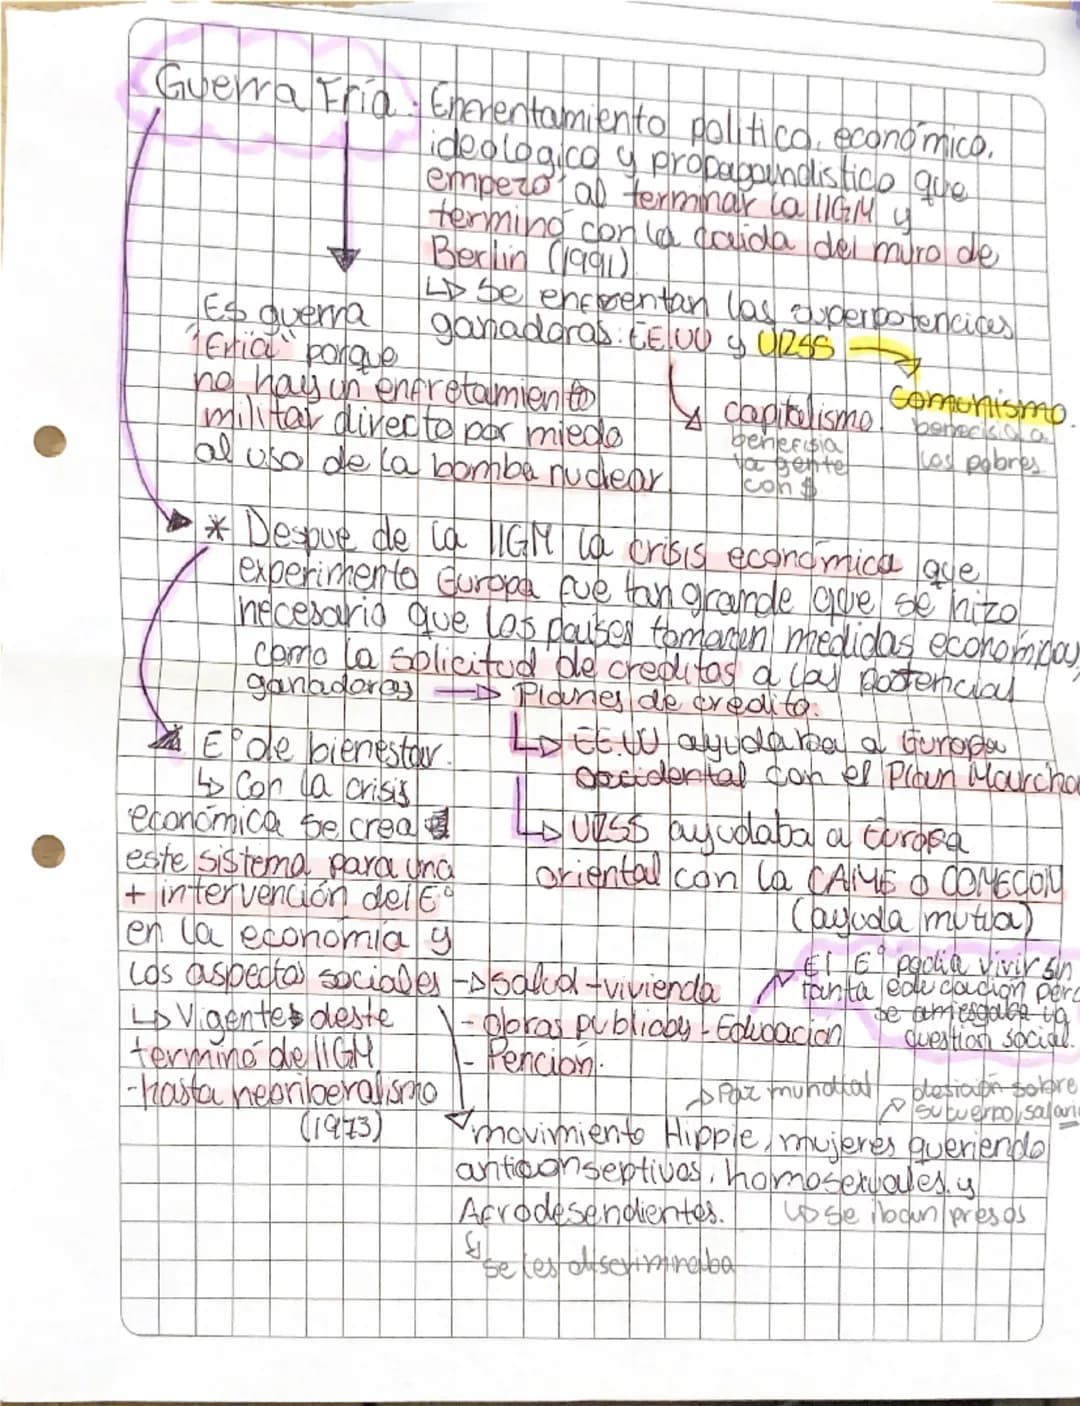 Guerra Fría: Enfrentamiento politico, económico,
ideologico y propagandistico que
empezó al terminar la IIGM y
terminó con la caida del muro de
Berlin (1991)
↳ Se enfrentan las superpotencias
ganadoras: EE.UU y URSS → Comunismo.
benecisia a
los pobres
capitalismo
benefisia
la gente
con $
Es guerra
"Fria" porque
no hay un enfretamiento
militar directo por miedo
al uso de la bomba nuclear
* Despue de la IIGM la crisis económica que
experimento Europa fue tan grande que se hizo
necesario que los paises tomaran medidas
como la solicitud de creditos a las potencias
ganadoras → Planes de credito.
↳ EE.UU ayudaba a Europa
occidental con el Plan
↳ URSS ayudaba a Europa
oriental con la CAME o COMECON
(ayuda mutua)
* E° de bienestar.
↳ Con la crisis
económica se crea
este sistema para una
+ intervención del E°
en la economía y
los aspectos sociales → Salud - vivienda
- Obras publicas - Educacion
- Pención.
El E° podia vivir sin
tanta educacion pero
se arriesgaba la
question social.
↳ Vigente deste
terminó de IIGM
- hasta neoriberalismo
(1973)
→ Paz mundial
desición sobre
su cuerpo, salario
movimiento Hippie, mujeres queriendo
anticonseptivos, homosexuales y
Afrodesendientes.
↳ se iban presos
↳ se les discriminaba